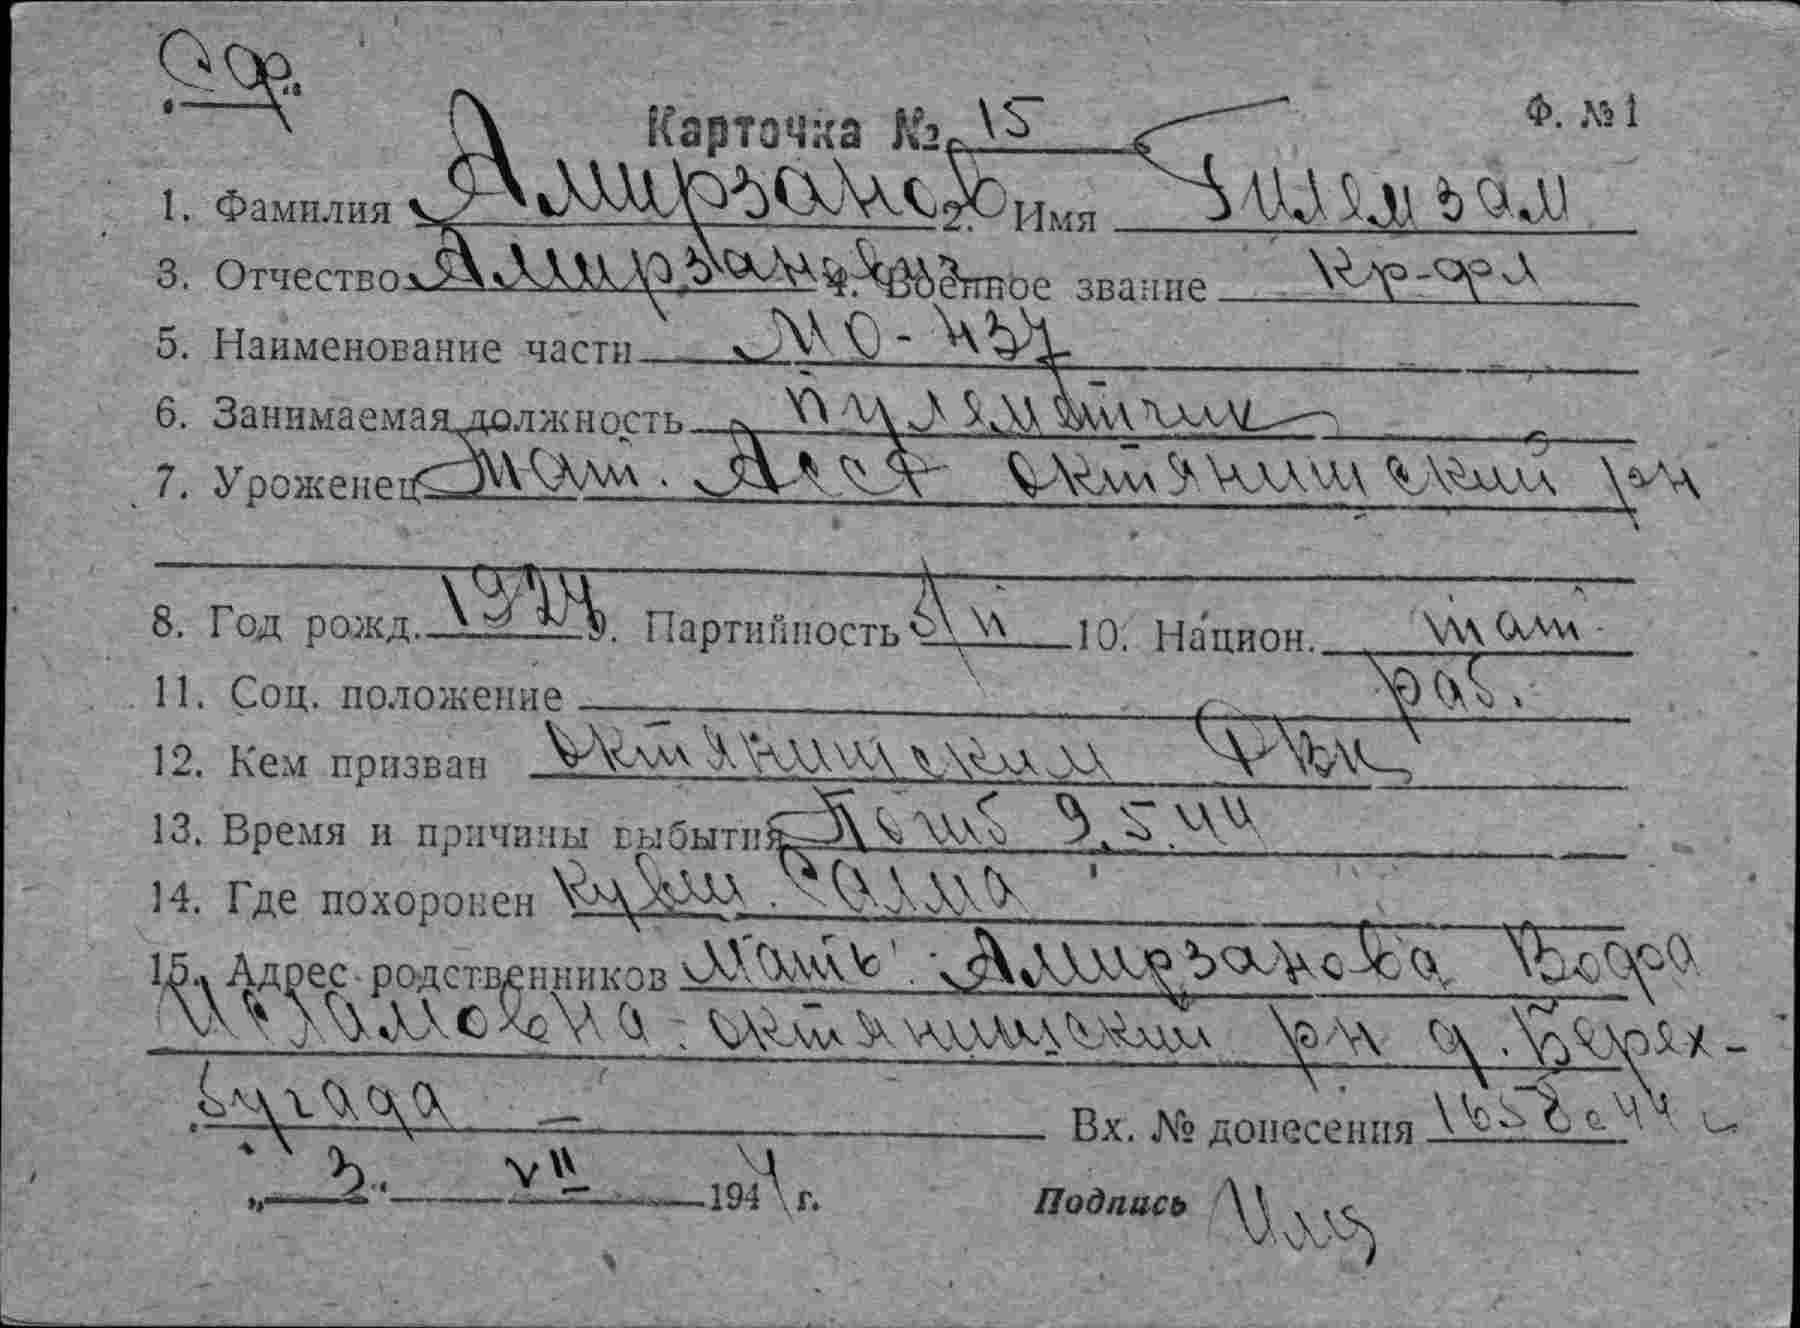 Карточка № 15 Ф. №1
1. Фамилия Амирзанов 2. Имя Гилемзам
3. Отчество Амирзанович 4. Военное звание Кр-фл
5. Наименование части МО-437
6. Занимаемая должность пулеметчик
7. Уроженец Тат. Асср октянишский рн
8. Год рожд. 1924 9. Партийность б/п 10. Национ. тат
11. Соц. положение раб.
12. Кем призван октянишским РВК
13. Время и причины выбытия Погиб 9.5.44
14. Где похоронен Салма
15. Адрес родственников Мать: Амирзанова
октянишский рн д. Берях-
бугада Вх. № донесения
„ 3 “ VII 1944 г. Подпись